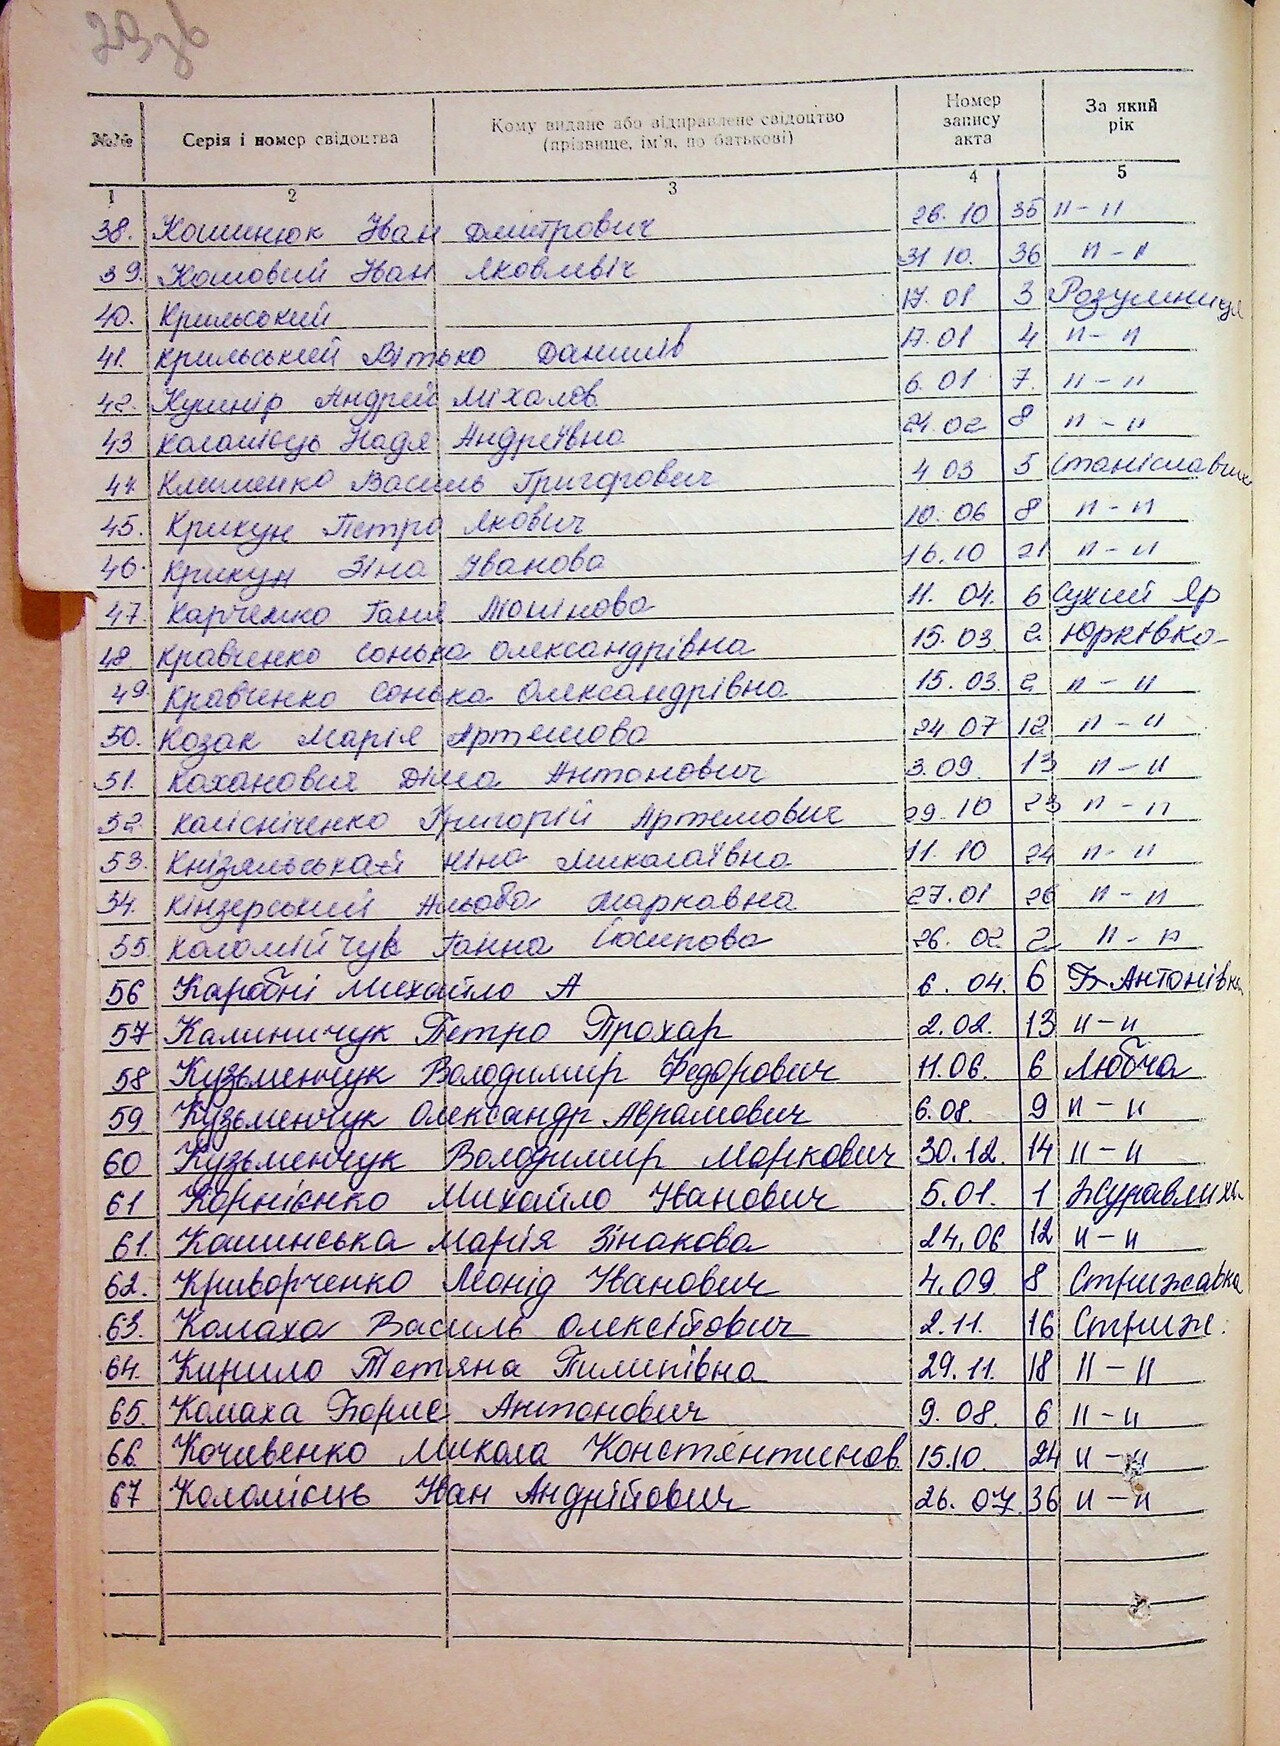 29зв
№№ Серія і номер свідоцтва Кому видане або відправлене свідоцтво (прізвище, ім'я, по батькові) Номер запису акта За який рік
1 2 3 4 5
38. Кошинюк Іван Дмитрович 26.10 35 п-п
39. Комовий Іван Яковлвіч 31 10. 36 п-п
40. Крильський 17.01 3 Розумниця
41. Крильський Вітько Данилів 17.01 4 п-п
42. Кушнір Андрей Міхалов. 6.01 7. п-п
43 Коломієць Надя Андреївна 21.02 8 п-п
44 Клименко Василь Григорович 4 03 5
45. Крикун Петро Якович 10.06 8 п-п
46. Крикун Зіна Іванова 16.10 21 п-п
47. Карченко Ганя 11. 04. 6 Сухий Яр
48. Кравченко Сонька Олександрівна 15.03. 2. Юрківка
49. Кравченко Сонька Олександрівна 15.03. 2 п-п
50. Козак Марія Артемова 24 07 12 п-п
51. Коханович Діма Антонович 3.09. 13 п-п
52. Колісніченко Григорій Артемович 29.10 23 п-п
53. Ніна Миколаївна 11.10 24 п-п
54. Кінзерський Марковна 27.01 26 п-п
55. Коломійчук Ганна Йосипова 26.02 2 п-п
56 Каробні Михайло А 6.04. 6 Б-Антонівка
57 Калиничук Петро Прохар 2.02. 13 п-п
58 Кузьменчук Володимир Федорович 11.06. 6 Любча
59 Кузьменчук Олександр Аврамович 6.08. 9 п-п
60 Кузьменчук Володимир Маркович 30.12. 14 п-п
61 Корнієнко Михайло Іванович 5.01. 1 Журавлиха
61. Камінська Марія Зінакова 24.06 12 п-п
62. Криворченко Лёнід Іванович 4.09. 8 Стрижавка
63. Комаха Василь Олексійович 2.11. 16 Стриж.
64. Кирило Тетяна Пилипівна 29.11. 18 п-п
65. Комаха Борис Антонович 9.08. 6 п-п
66. Кочивенко Микола Констентинов. 15.10. 24 п-п
67 Коломієць Іван Андрійович 26.07. 36 п-п